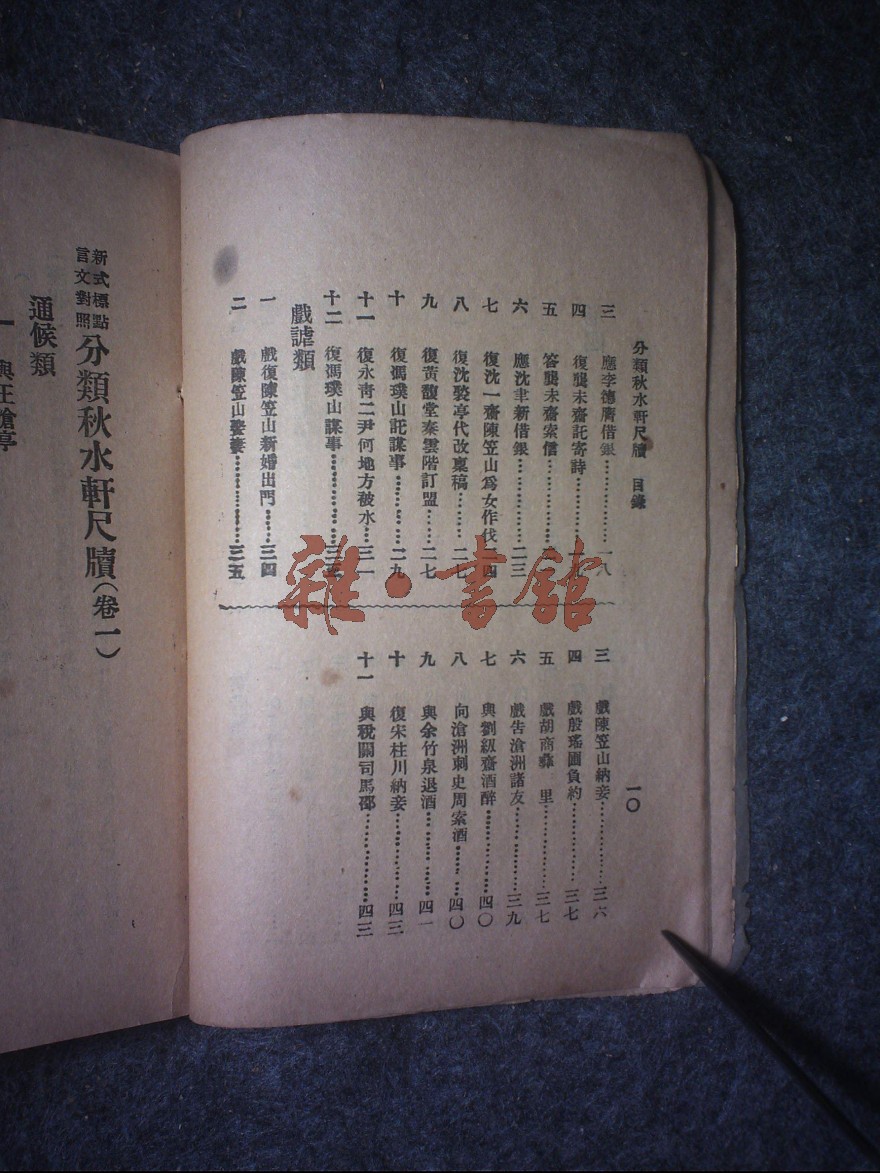 分類秋水軒尺牘　目錄
一〇
三　應李德膺借銀……一八
四　復龔未齋託寄詩……
五　答龔未齋索信……
六　應沈聿新借銀……二三
七　復沈一齋陳笠山爲女作伐　四
八　復沈裝亭代改稟稿……二七
九　復黃馥堂秦雲階訂盟……二七
十　復馮璞山託謀事……二九
十一　復永青二尹何地方被水…三一
十二　復馮璞山謀事……三
戲謔類
一　戲復陳笠山新婚出門……三四
二　戲陳笠山娶妾……三五
三　戲陳笠山納妾……三六
四　戲殷瑤圃負約……三七
五　戲胡商彝　里……三七
六　戲吿滄洲諸友……三九
七　與劉紉齋酒醉……四〇
八　向滄洲刺史周索酒……四〇
九　與余竹泉退酒……四一
十　復宋柱川納妾……四三
十一　與稅關司馬邵……四三
新式標點
言文對照
分類秋水軒尺牘（卷一）
通候類
一　與汪
雜·書館